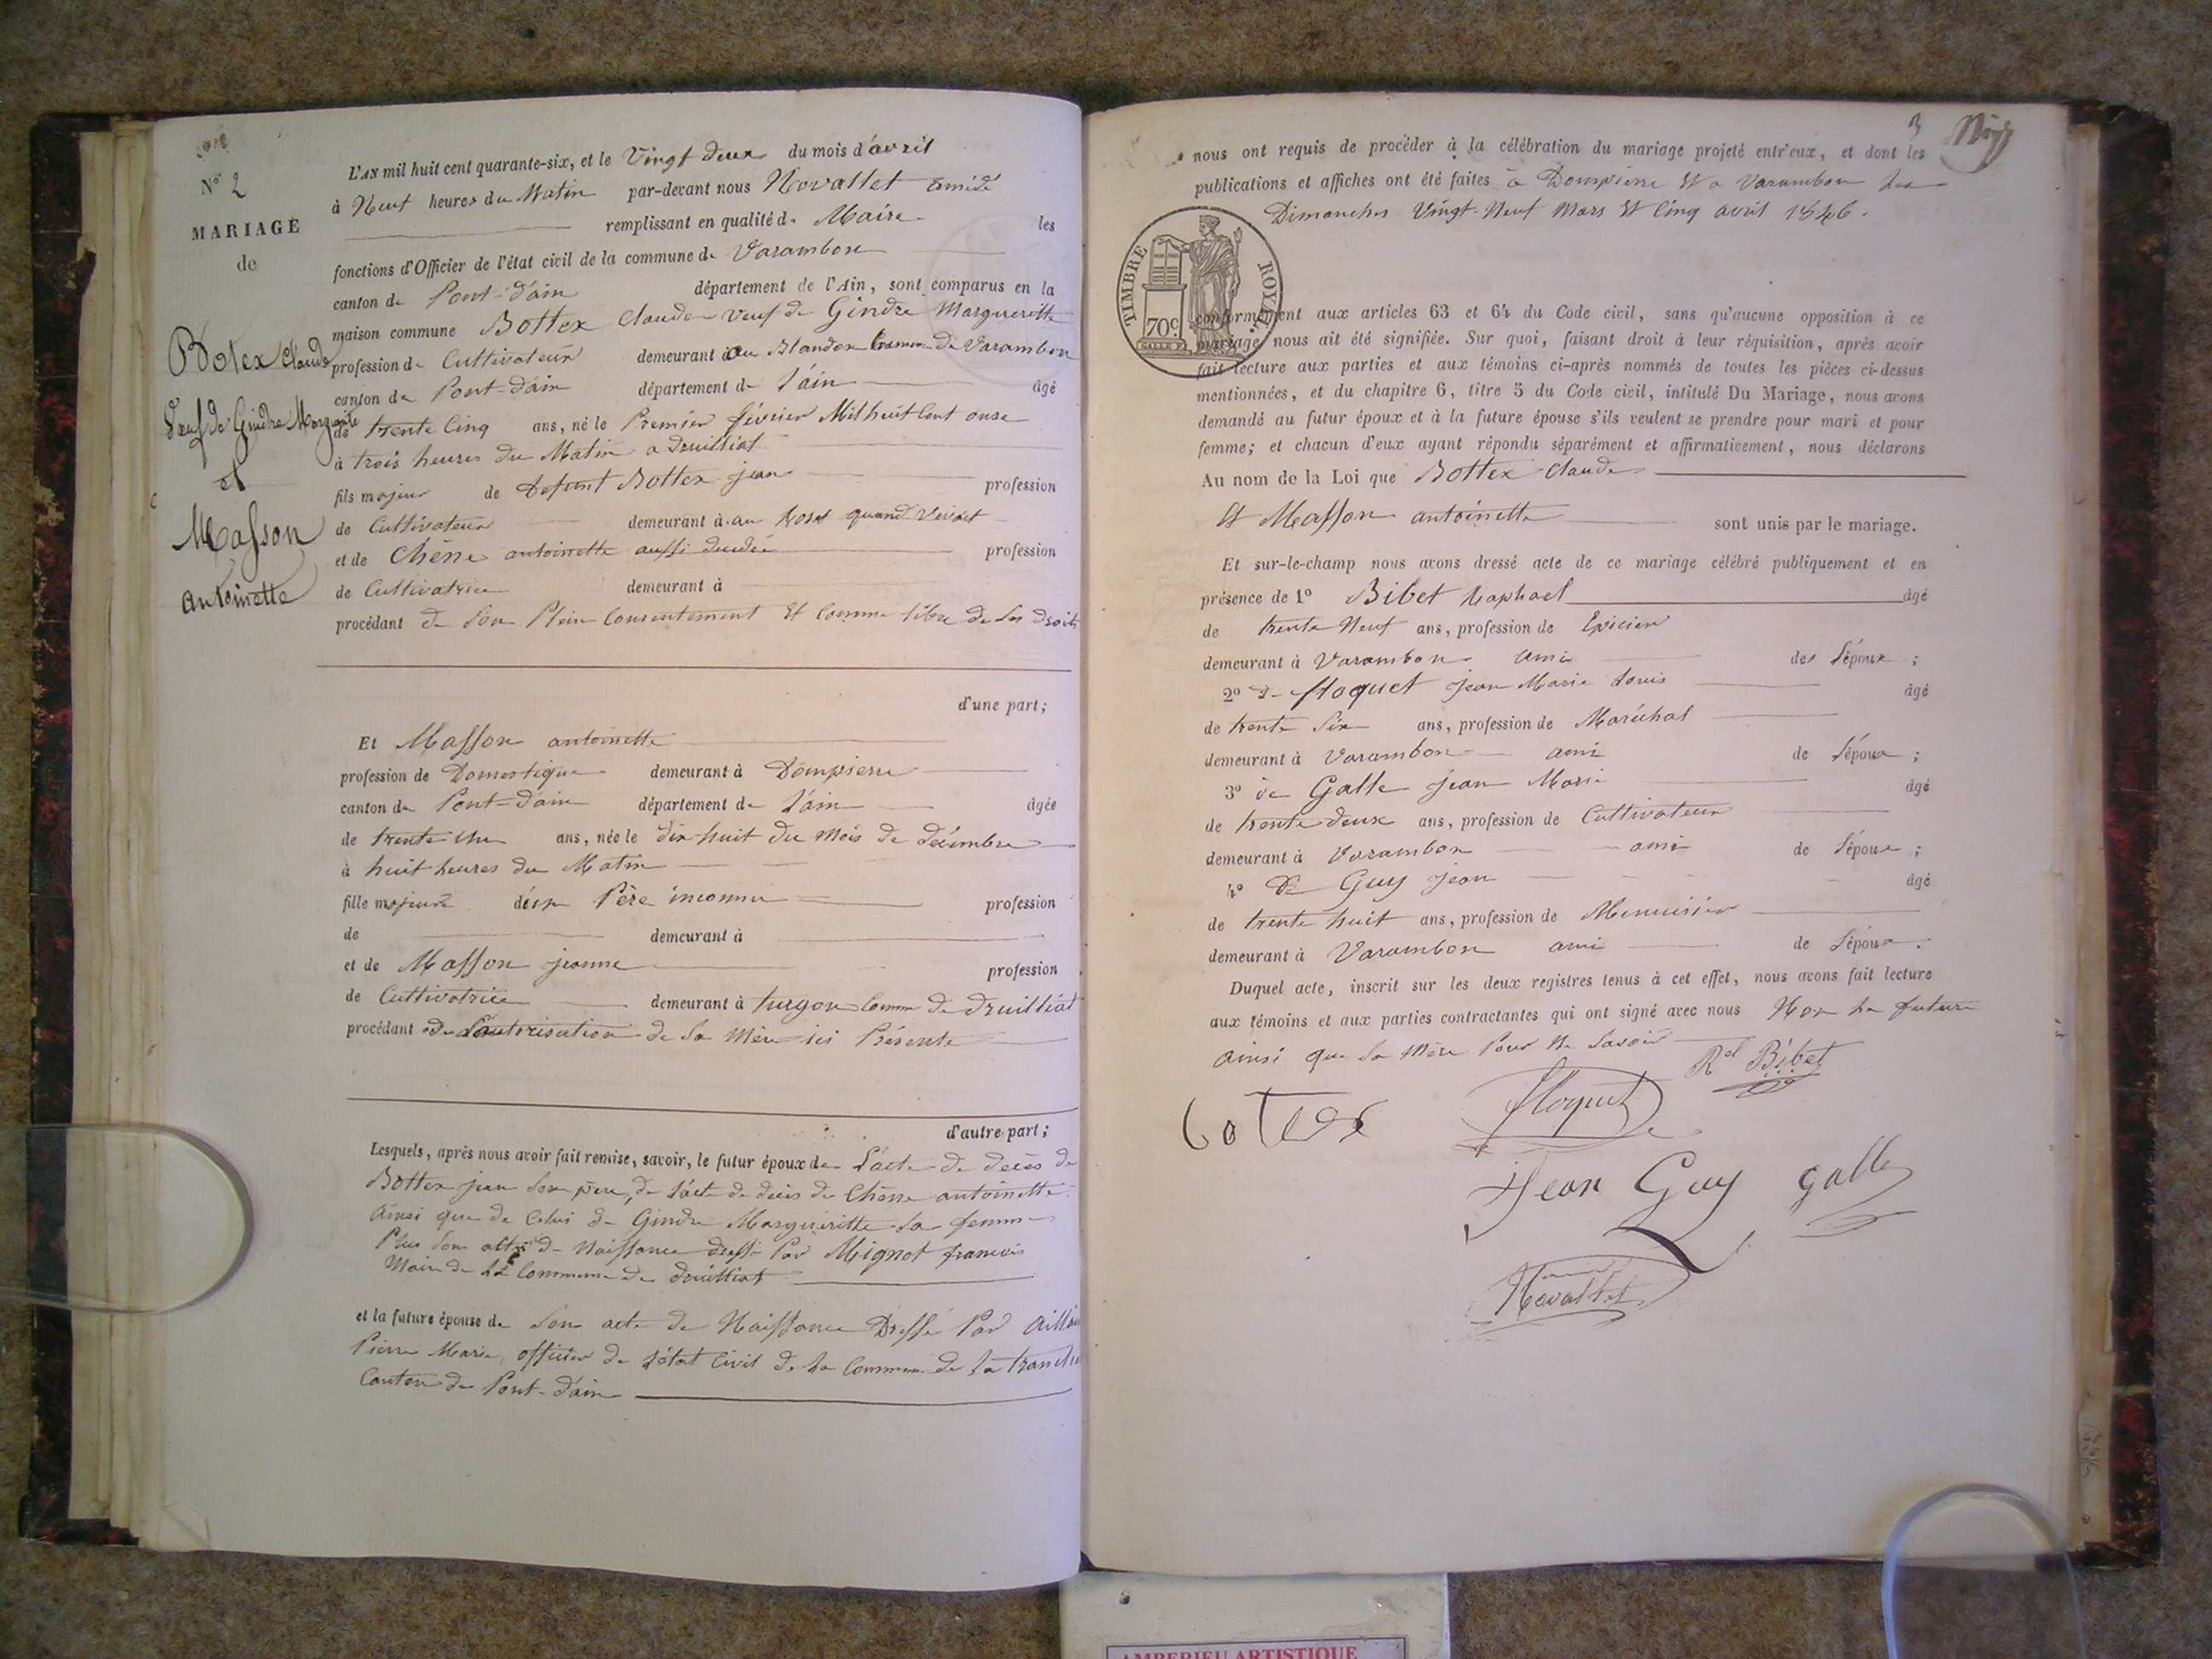 Nº 2
MARIAGE
de
Botex Claude
Veuf de Gindre Margueritte
et
Masson
antoinette
L'AN mil huit cent quarante-six, et le Vingt deux du mois d'avril
à Neuf heures du Matin par-devant nous Novallet amédé
remplissant en qualité de Maire les
fonctions d'Officier de l'état civil de la commune de Varambon
canton de Pont-d'ain département de l'Ain, sont comparus en la
maison commune Bottex Claude Veuf de Gindre Margueritte
profession de Cultivateur demeurant à au Blandon Commune de Varambon
canton de Pont-d'ain département de l'ain âgé
de trente Cinq ans, né le Premier février Mil huit Cent onze
à trois heures du Matin a Druilliat
fils majeur de Defunt Bottex jean profession
de Cultivateur demeurant à au quand Vivait
et de Chêne antoinette aussi décédée profession
de Cultivatrice demeurant à
procédant de son Plein Consentement et Comme libre de ses droits
d'une part;
Et Masson antoinette
profession de Domestique demeurant à Dompierre
canton de Pont-d'ain département de l'ain âgée
de trente un ans, née le dix-huit du Mois de décembre
à huit heures du Matin
fille majeure d'un Père inconnu profession
de demeurant à
et de Masson jeanne profession
de Cultivatrice demeurant à turgon Comm. de druilliat
procédant de l'autorisation de sa Mère ici Présente
d'autre part;
Lesquels, après nous avoir fait remise, savoir, le futur époux de L'acte de décès de
Bottex jean son père, de l'acte de décès de Chêne antoinette
ainsi que de Celui de Gindre Margueritte sa femme
Plus son acte de Naissance dressé Par Mignot francois
Maire de la Commune de druilliat
et la future épouse de son acte de Naissance Dressé Par
Pierre Marie, officier de l'état Civil de la Commune de la
Canton de Pont-d'ain
3
nous ont requis de procéder à la célébration du mariage projeté entr'eux, et dont les
publications et affiches ont été faites à Dompierre et a Varambon Les
Dimanches Vingt-Neuf Mars et Cinq avril 1846.
TIMBRE ROYAL
70c
conformément aux articles 63 et 64 du Code civil, sans qu'aucune opposition à ce
mariage nous ait été signifiée. Sur quoi, faisant droit à leur réquisition, après avoir
fait lecture aux parties et aux témoins ci-après nommés de toutes les pièces ci-dessus
mentionnées, et du chapitre 6, titre 5 du Code civil, intitulé Du Mariage, nous avons
demandé au futur époux et à la future épouse s'ils veulent se prendre pour mari et pour
femme; et chacun d'eux ayant répondu séparément et affirmativement, nous déclarons
Au nom de la Loi que Bottex Claude
et Masson antoinette sont unis par le mariage.
Et sur-le-champ nous avons dressé acte de ce mariage célébré publiquement et en
présence de 1º Bibet Raphael âgé
de trente Neuf ans, profession de Epicier
demeurant à Varambon ami de l'époux ;
2º de floquet jean Marie Louis âgé
de trente Six ans, profession de Maréchal
demeurant à Varambon ami de l'époux ;
3º de Galle jean Marie âgé
de trente deux ans, profession de Cultivateur
demeurant à Varambon ami de l'époux ;
4º de Guy jean âgé
de trente huit ans, profession de Menuisier
demeurant à Varambon ami de l'époux.
Duquel acte, inscrit sur les deux registres tenus à cet effet, nous avons fait lecture
aux témoins et aux parties contractantes qui ont signé avec nous Non La future
ainsi que sa Mère Pour Ne Savoir
Rel Bibet
boTex floquet
Jean Guy galle
Novallet
AMBERIEU ARTISTIQUE